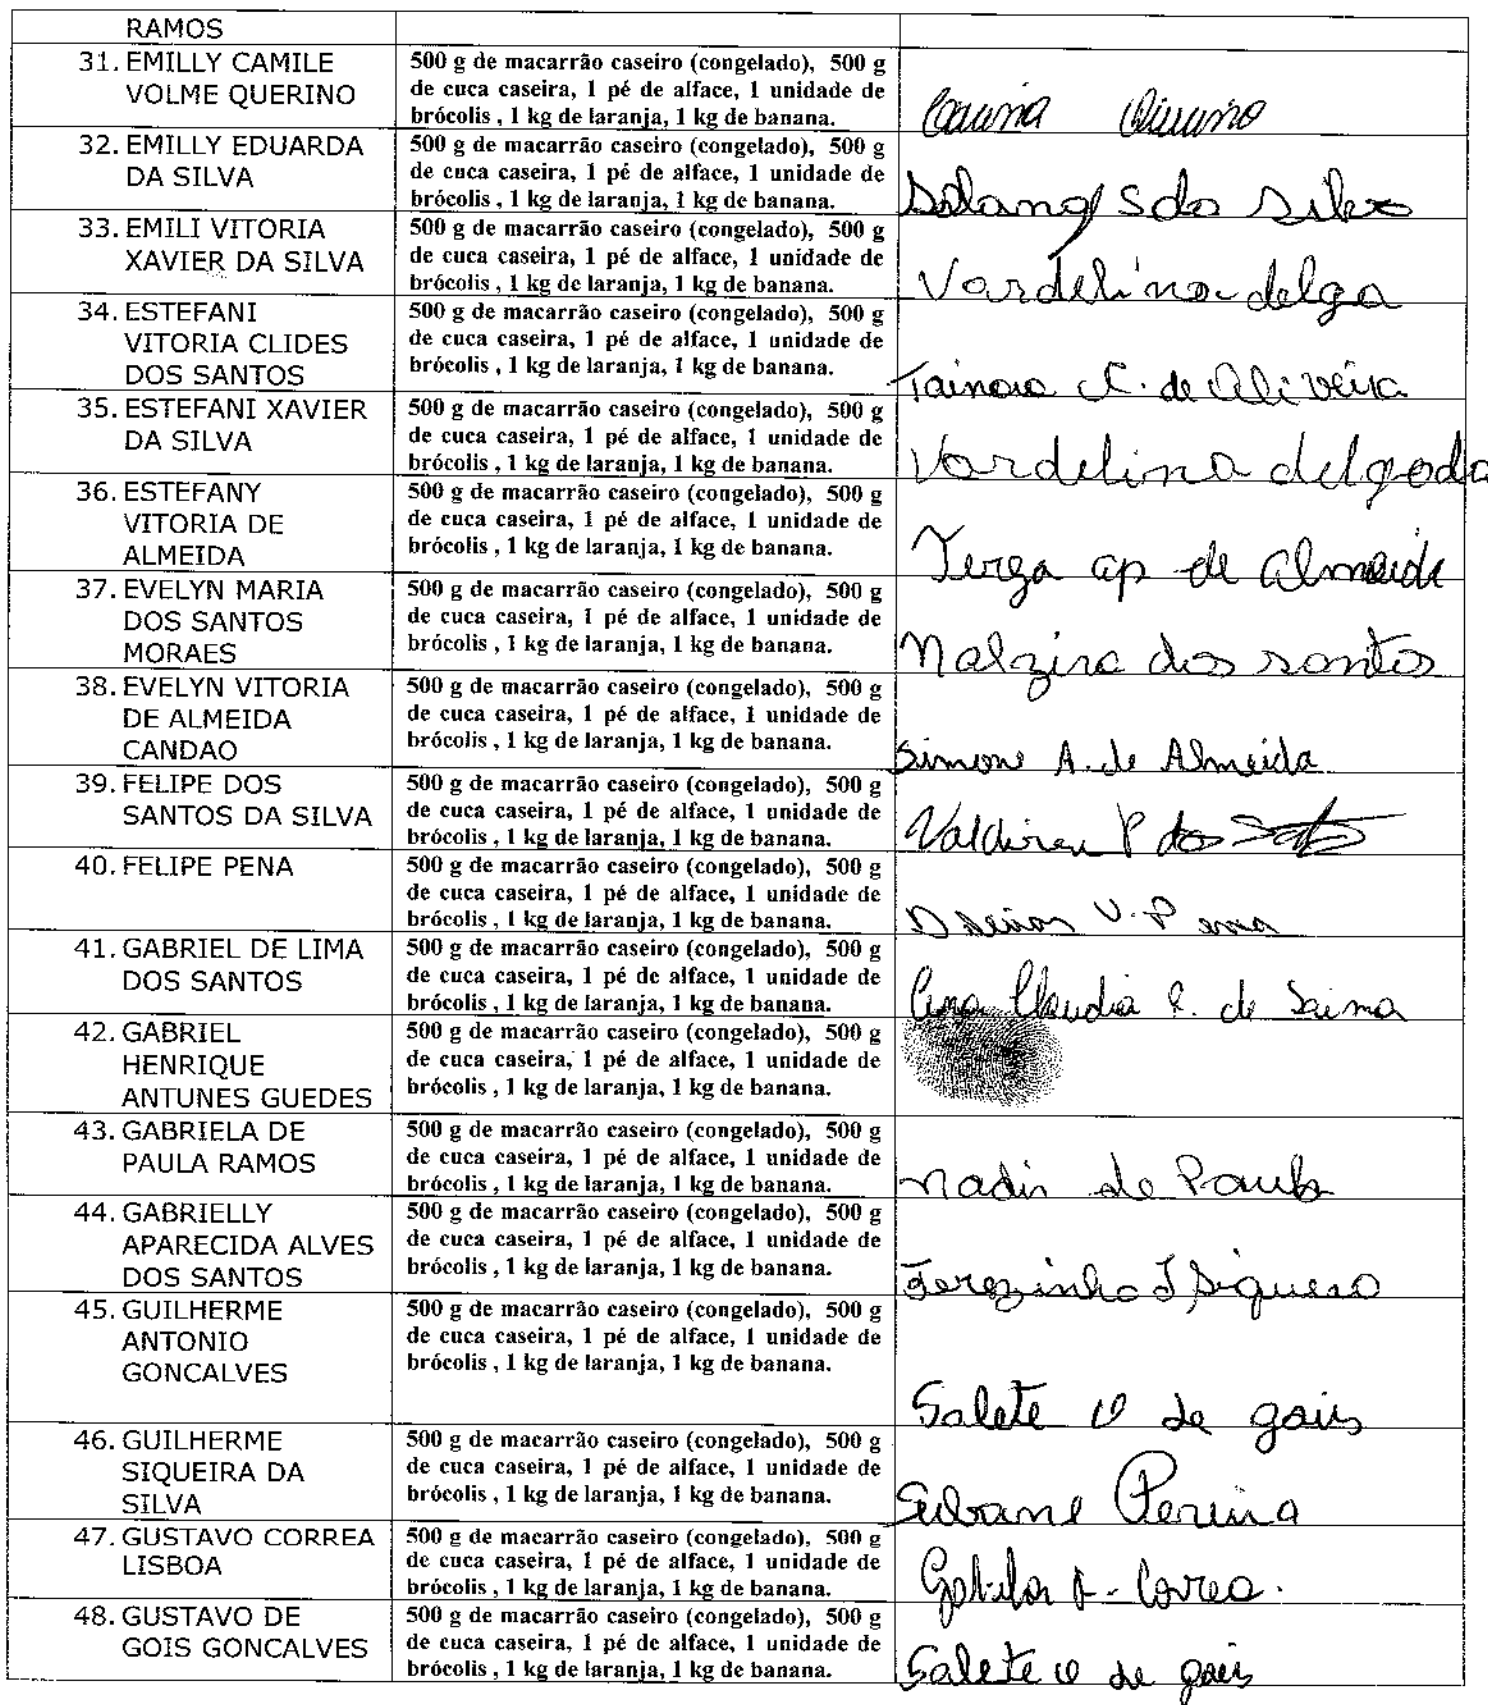 RAMOS
31. EMILLY CAMILE
VOLME QUERINO
500 g de macarrão caseiro (congelado), 500 g
de cuca caseira, 1 pé de alface, 1 unidade de
brócolis , 1 kg de laranja, 1 kg de banana.
32. EMILLY EDUARDA
DA SILVA
500 g de macarrão caseiro (congelado), 500 g
de cuca caseira, 1 pé de alface, 1 unidade de
brócolis , 1 kg de laranja, 1 kg de banana.
33. EMILI VITORIA
XAVIER DA SILVA
500 g de macarrão caseiro (congelado), 500 g
de cuca caseira, 1 pé de alface, 1 unidade de
brócolis , 1 kg de laranja, 1 kg de banana.
Vardelina delga
34. ESTEFANI
VITORIA CLIDES
DOS SANTOS
500 g de macarrão caseiro (congelado), 500 g
de cuca caseira, 1 pé de alface, 1 unidade de
brócolis , 1 kg de laranja, 1 kg de banana.
de Oliveira
35. ESTEFANI XAVIER
DA SILVA
500 g de macarrão caseiro (congelado), 500 g
de cuca caseira, 1 pé de alface, 1 unidade de
brócolis , 1 kg de laranja, 1 kg de banana.
Vardelina delgada
36. ESTEFANY
VITORIA DE
ALMEIDA
500 g de macarrão caseiro (congelado), 500 g
de cuca caseira, 1 pé de alface, 1 unidade de
brócolis , 1 kg de laranja, 1 kg de banana.
ap de Almeida
37. EVELYN MARIA
DOS SANTOS
MORAES
500 g de macarrão caseiro (congelado), 500 g
de cuca caseira, 1 pé de alface, 1 unidade de
brócolis , 1 kg de laranja, 1 kg de banana.
Nalzira dos santos
38. EVELYN VITORIA
DE ALMEIDA
CANDAO
500 g de macarrão caseiro (congelado), 500 g
de cuca caseira, 1 pé de alface, 1 unidade de
brócolis , 1 kg de laranja, 1 kg de banana.
Simone A. de Almeida
39. FELIPE DOS
SANTOS DA SILVA
500 g de macarrão caseiro (congelado), 500 g
de cuca caseira, 1 pé de alface, 1 unidade de
brócolis , 1 kg de laranja, 1 kg de banana.
40. FELIPE PENA
500 g de macarrão caseiro (congelado), 500 g
de cuca caseira, 1 pé de alface, 1 unidade de
brócolis , 1 kg de laranja, 1 kg de banana.
41. GABRIEL DE LIMA
DOS SANTOS
500 g de macarrão caseiro (congelado), 500 g
de cuca caseira, 1 pé de alface, 1 unidade de
brócolis , 1 kg de laranja, 1 kg de banana.
Ana Claudia
42. GABRIEL
HENRIQUE
ANTUNES GUEDES
500 g de macarrão caseiro (congelado), 500 g
de cuca caseira, 1 pé de alface, 1 unidade de
brócolis , 1 kg de laranja, 1 kg de banana.
43. GABRIELA DE
PAULA RAMOS
500 g de macarrão caseiro (congelado), 500 g
de cuca caseira, 1 pé de alface, 1 unidade de
brócolis , 1 kg de laranja, 1 kg de banana.
Nadir de Paula
44. GABRIELLY
APARECIDA ALVES
DOS SANTOS
500 g de macarrão caseiro (congelado), 500 g
de cuca caseira, 1 pé de alface, 1 unidade de
brócolis , 1 kg de laranja, 1 kg de banana.
45. GUILHERME
ANTONIO
GONCALVES
500 g de macarrão caseiro (congelado), 500 g
de cuca caseira, 1 pé de alface, 1 unidade de
brócolis , 1 kg de laranja, 1 kg de banana.
Salete de gois
46. GUILHERME
SIQUEIRA DA
SILVA
500 g de macarrão caseiro (congelado), 500 g
de cuca caseira, 1 pé de alface, 1 unidade de
brócolis , 1 kg de laranja, 1 kg de banana.
Pereira
47. GUSTAVO CORREA
LISBOA
500 g de macarrão caseiro (congelado), 500 g
de cuca caseira, 1 pé de alface, 1 unidade de
brócolis , 1 kg de laranja, 1 kg de banana.
Correa
48. GUSTAVO DE
GOIS GONCALVES
500 g de macarrão caseiro (congelado), 500 g
de cuca caseira, 1 pé de alface, 1 unidade de
brócolis , 1 kg de laranja, 1 kg de banana.
Salete de gois